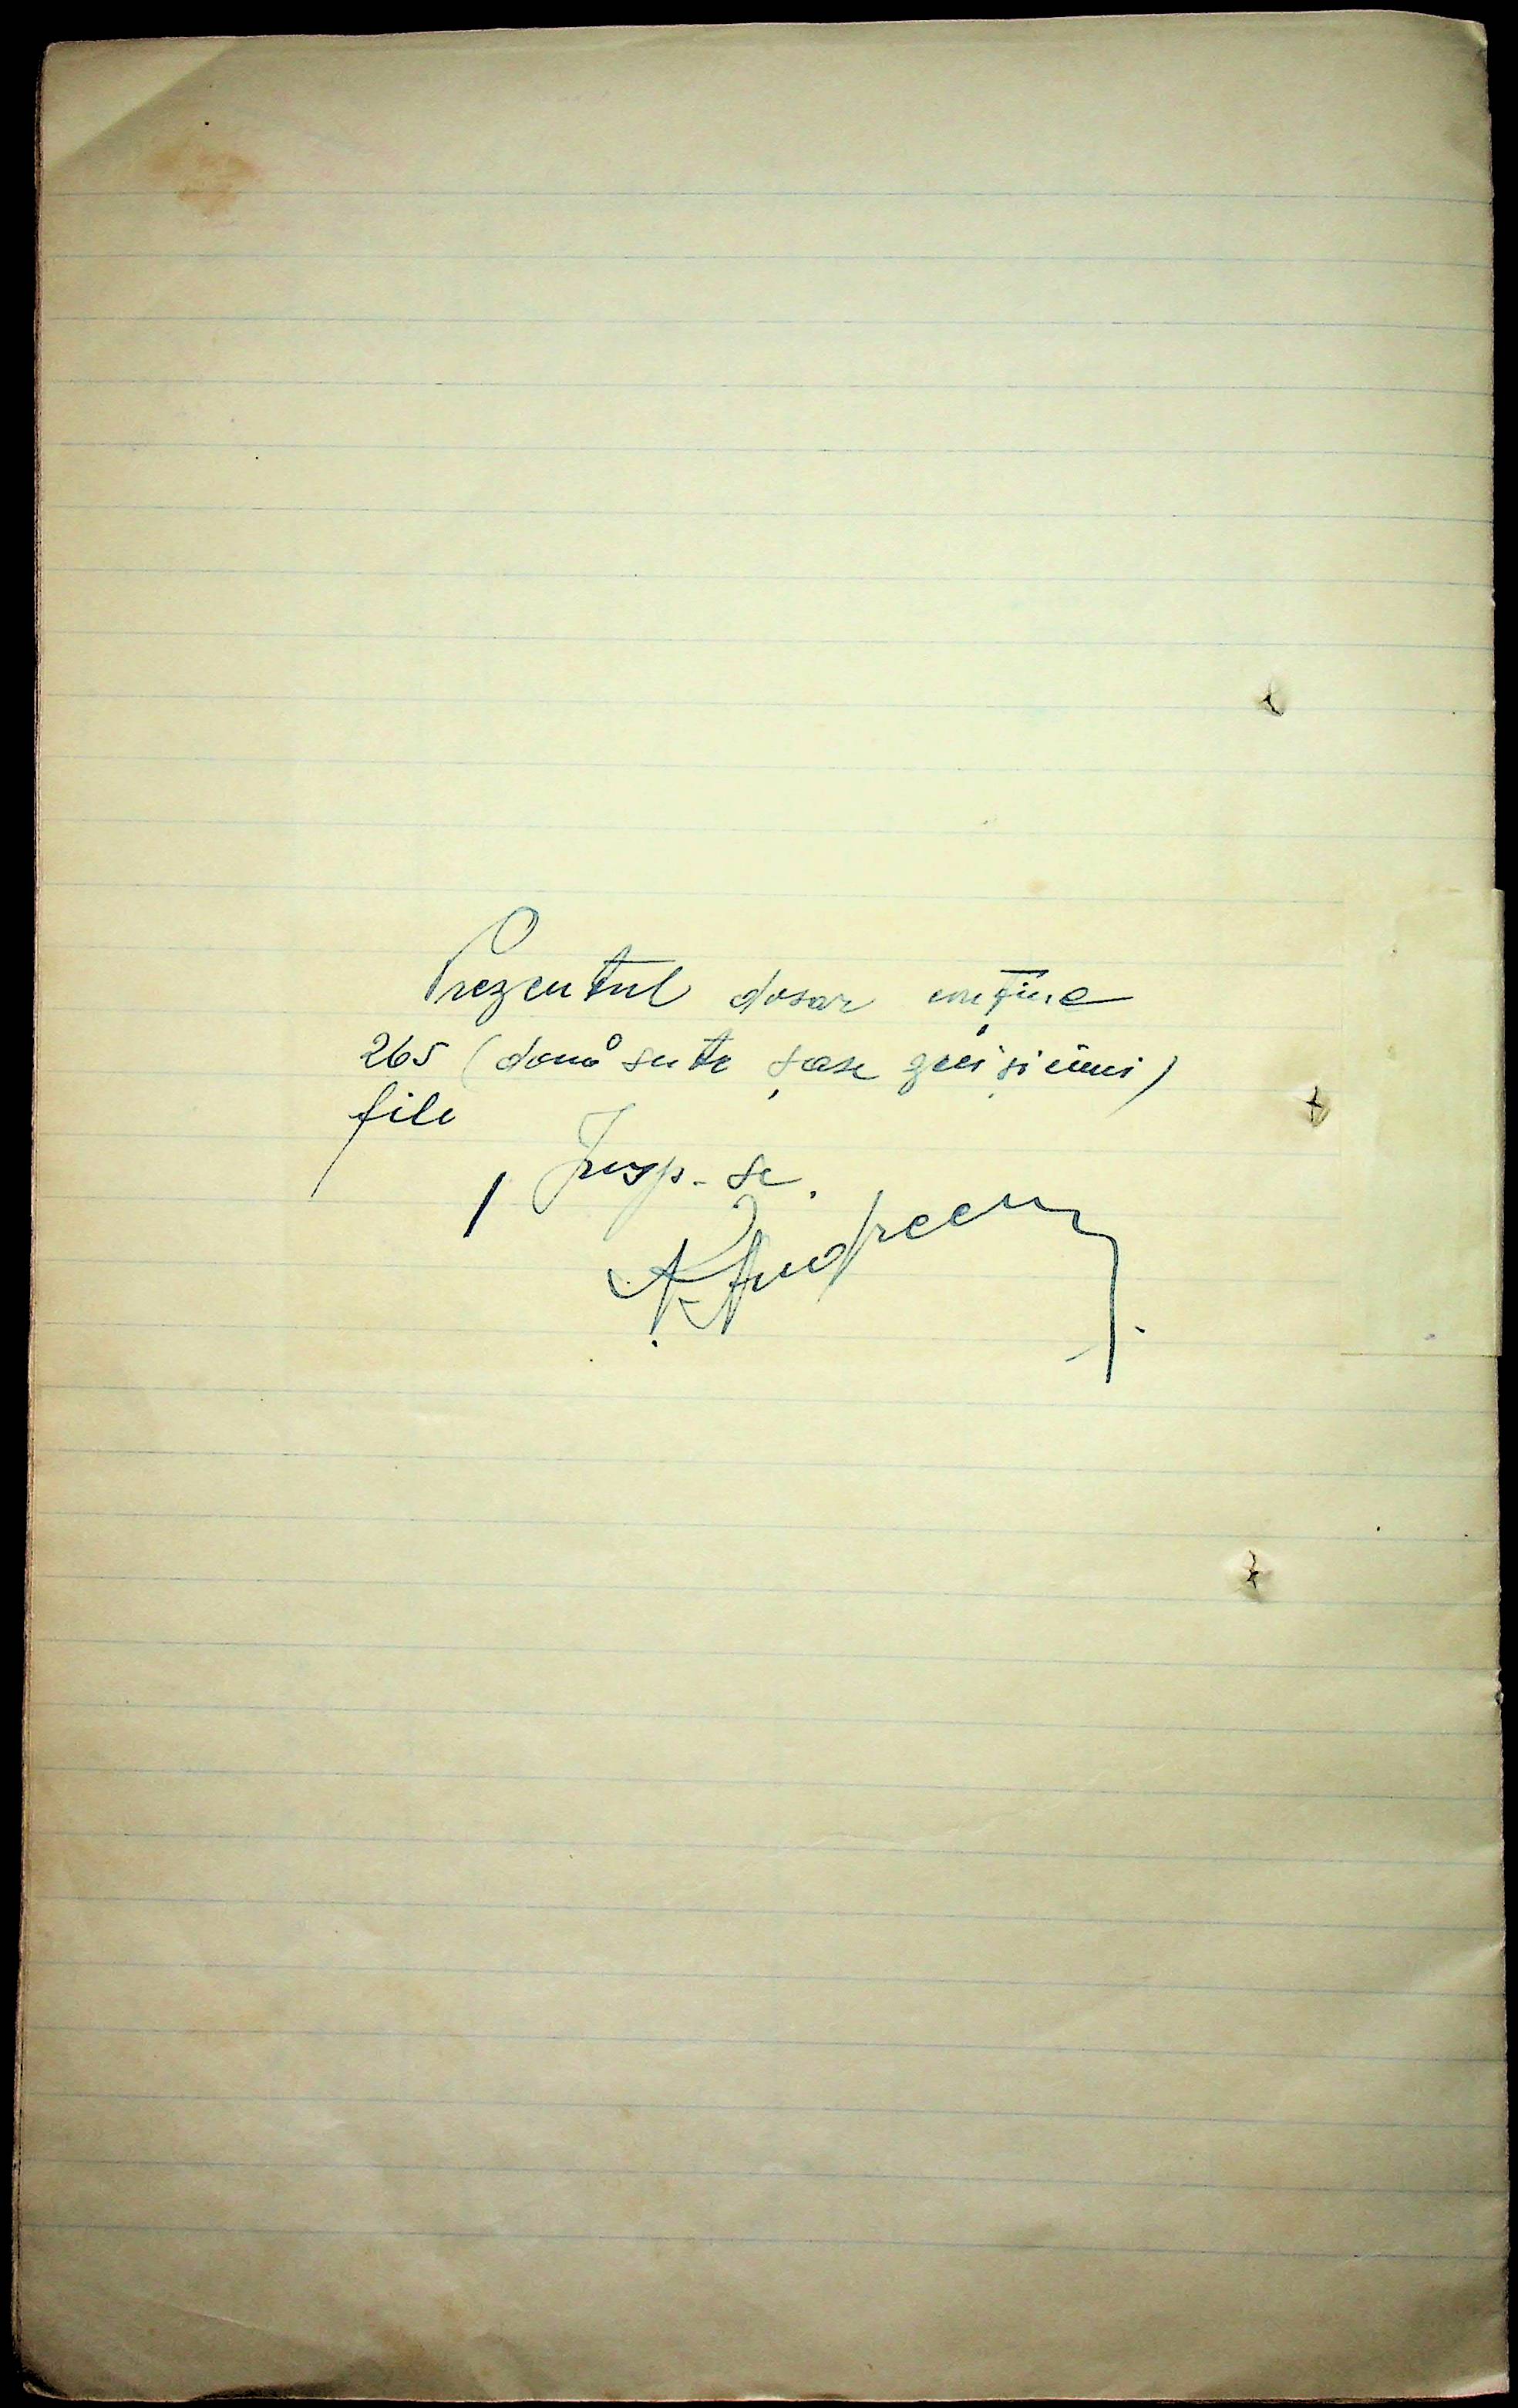 Prezentul dosar conține
265 (două sute șase zeci și cinci)
file
Insp. se.
Andreescu